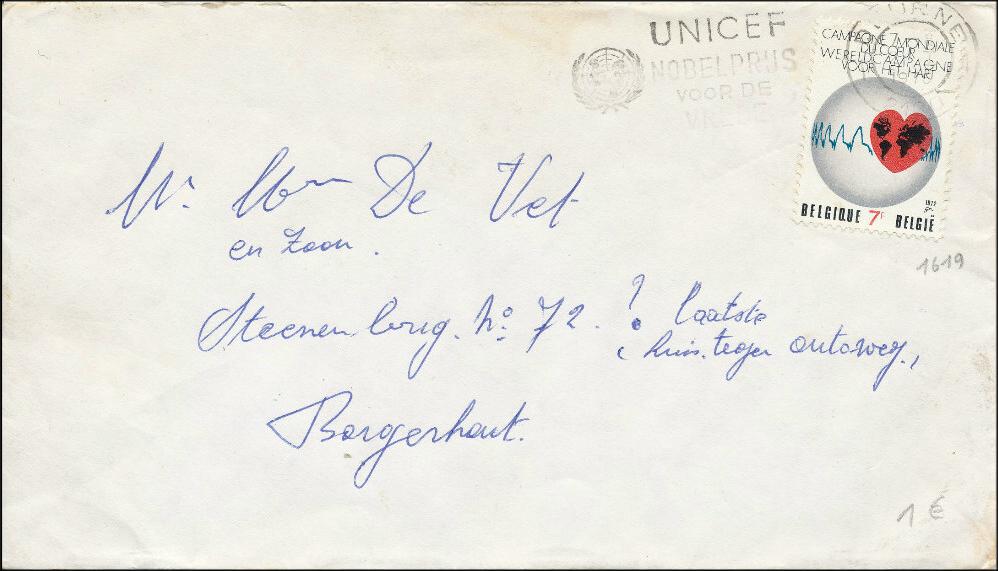 UNICEF
NOBELPRIJS
VOOR DE
VREDE
CAMPAGNE MONDIALE
DU CŒUR
WERELDCAMPAGNE
VOOR HET HART
1972
BELGIQUE 7F BELGIË
1619
De Vet
en Zoon.
Steenenbrug. No. 72. ? laatste
( huis tegen autoweg,
Borgerhout.
1 €